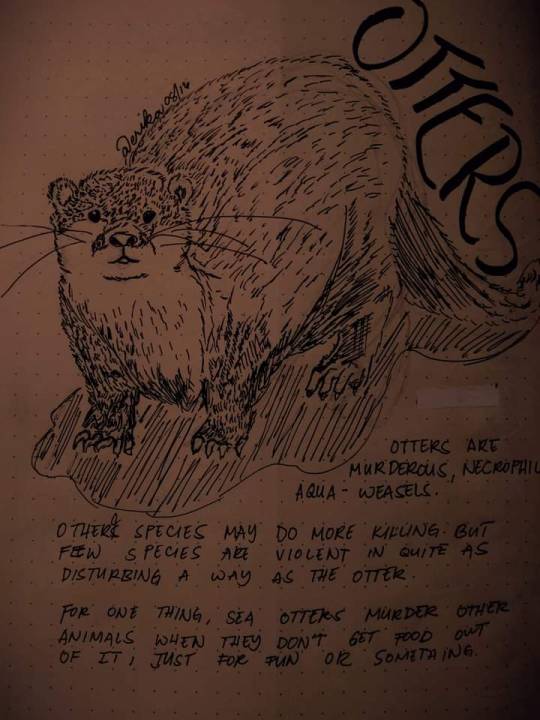 OTTERS
@erika 05/16
OTTERS ARE
MURDEROUS, NECROPHIL
AQUA-WEASELS.
OTHERS SPECIES MAY DO MORE KILLING. BUT
FEW SPECIES ARE VIOLENT IN QUITE AS
DISTURBING A WAY AS THE OTTER.
FOR ONE THING, SEA OTTERS MURDER OTHER
ANIMALS WHEN THEY DON'T GET FOOD OUT
OF IT, JUST FOR FUN OR SOMETHING.